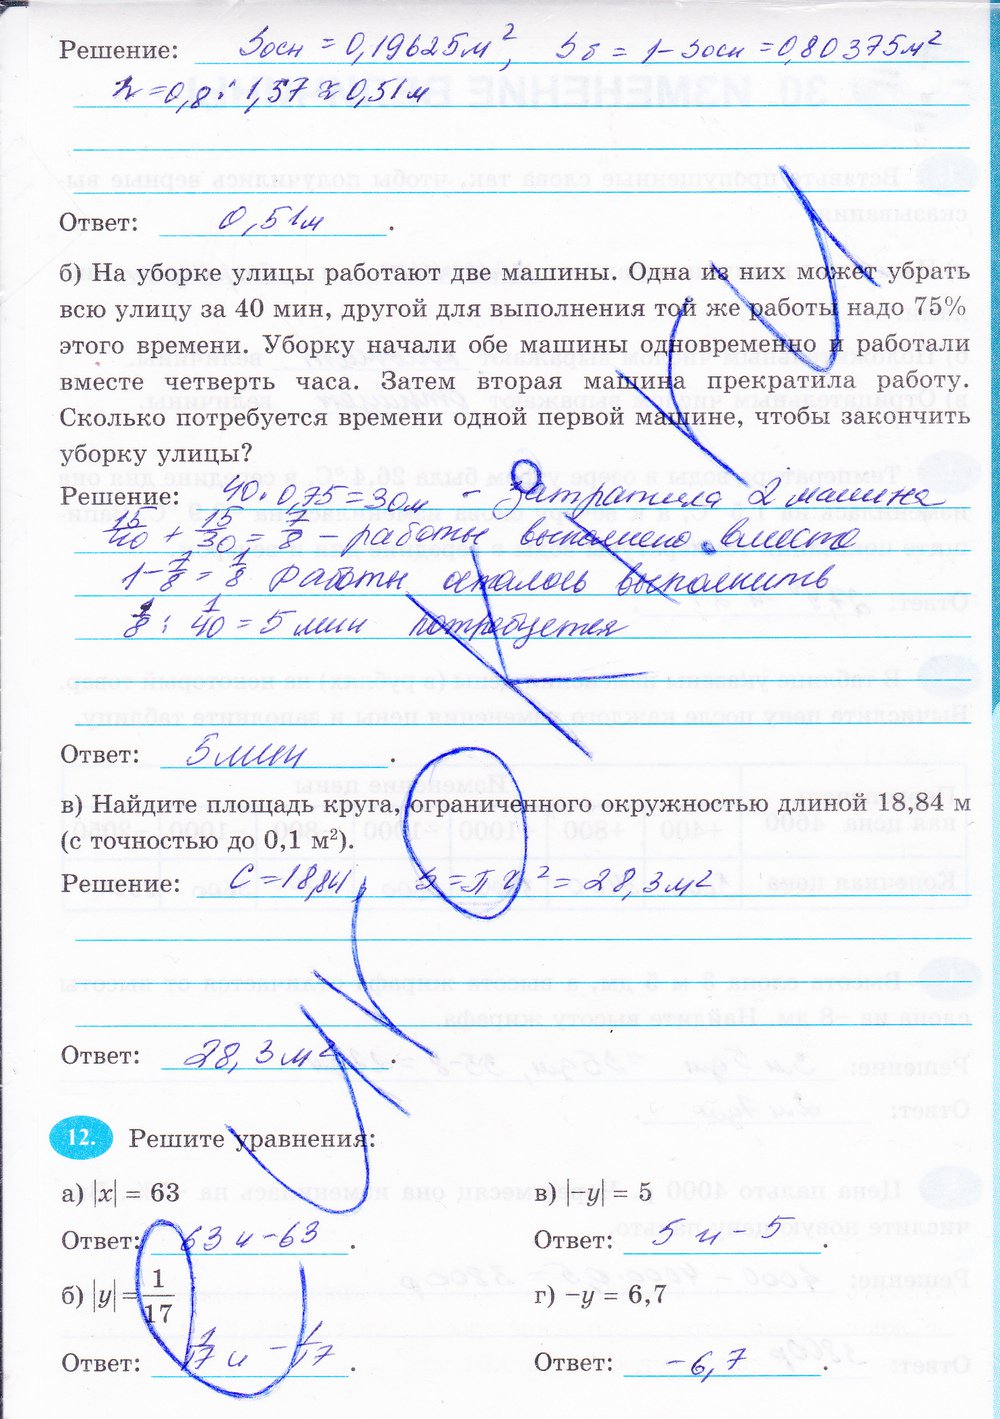 Решение: Sосн = 0,19625м², Sб = 1 - Sосн = 0,80375м²
h = 0,8 : 1,57 ≈ 0,51м
Ответ: 0,51м.
б) На уборке улицы работают две машины. Одна из них может убрать
всю улицу за 40 мин, другой для выполнения той же работы надо 75%
этого времени. Уборку начали обе машины одновременно и работали
вместе четверть часа. Затем вторая машина прекратила работу.
Сколько потребуется времени одной первой машине, чтобы закончить
уборку улицы?
Решение: 40 · 0,75 = 30м - затратила 2 машина
15/40 + 15/30 = 7/8 - работы выполнено вместе
1 - 7/8 = 1/8 работы осталось выполнить
1/8 : 1/40 = 5 мин потребуется
Ответ: 5 мин.
в) Найдите площадь круга, ограниченного окружностью длиной 18,84 м
(с точностью до 0,1 м²).
Решение: C = 18,84, S = πr² = 28,3 м²
Ответ: 28,3 м².
12. Решите уравнения:
а) |x| = 63 в) |-y| = 5
Ответ: 63 и -63. Ответ: 5 и -5.
б) |y| = 1/17 г) -y = 6,7
Ответ: 1/17 и -1/17. Ответ: -6,7.